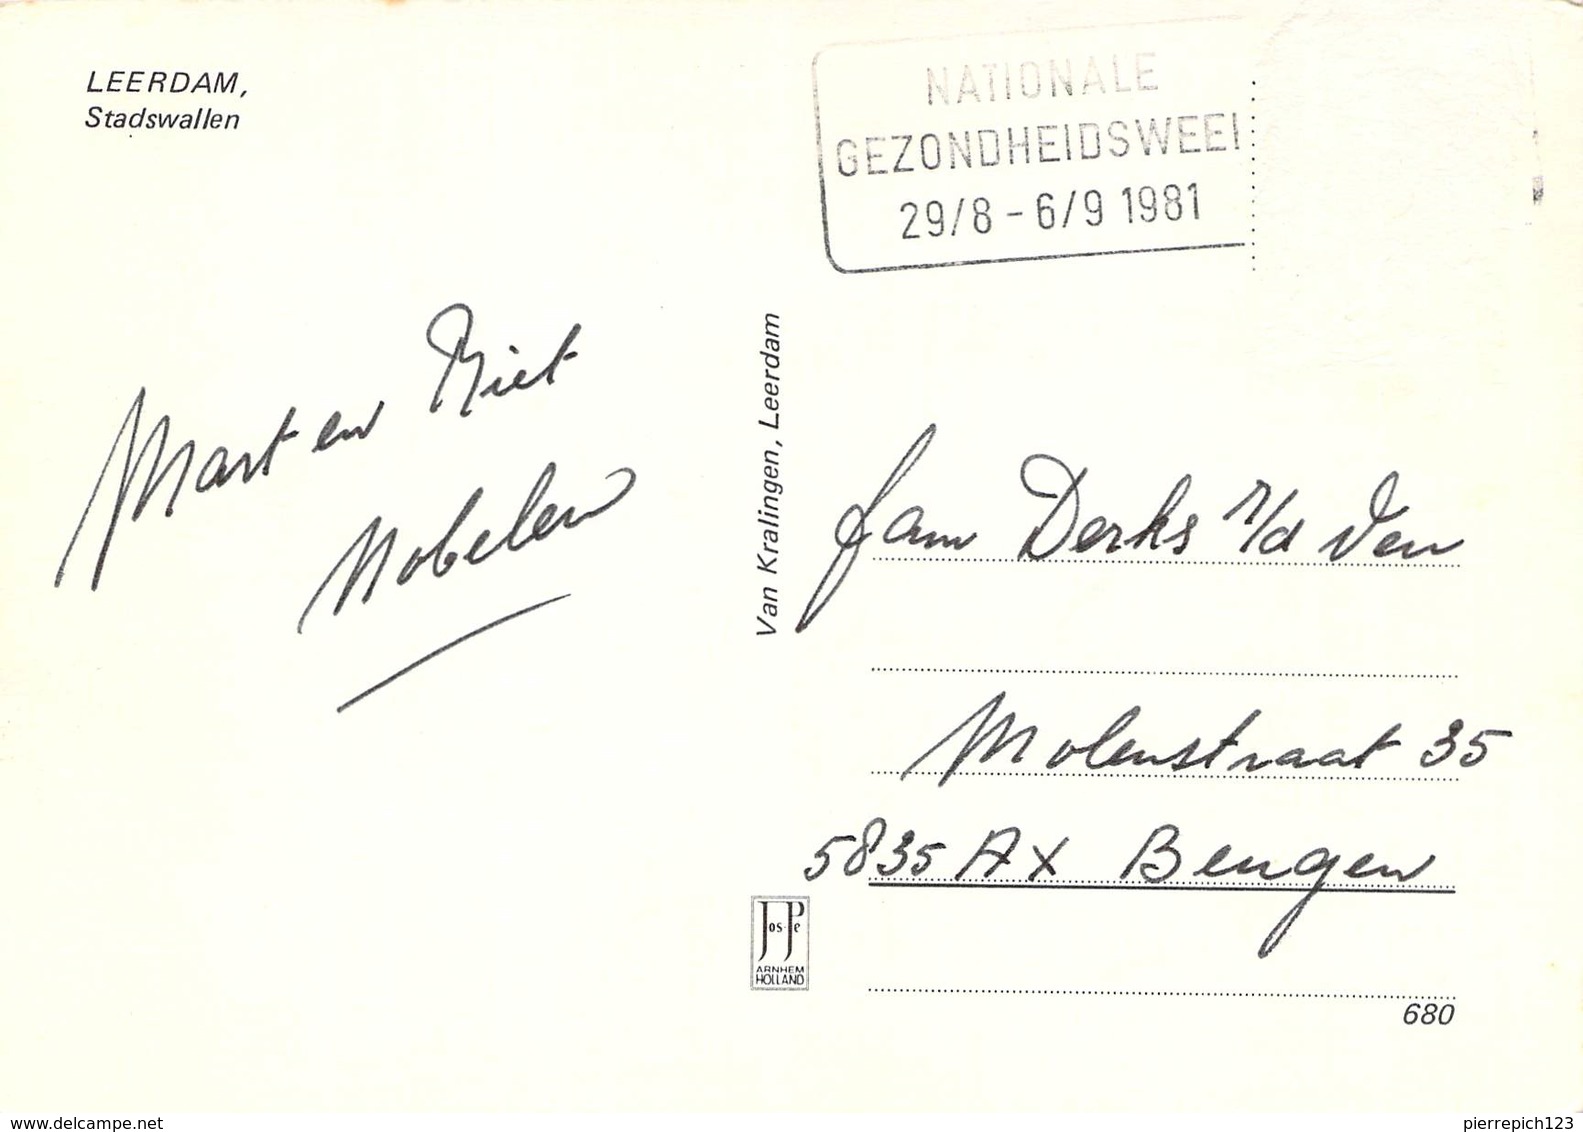 LEERDAM,
Stadswallen
NATIONALE
GEZONDHEIDSWEE
29/8 - 6/9 1981
Mart en Riet
Nobelen
Van Kralingen, Leerdam
Fam Derks v/d Ven
Molenstraat 35
5835 AX Beugen
Jos-Pe
ARNHEM
HOLLAND
680
www.delcampe.net
pierrepich123